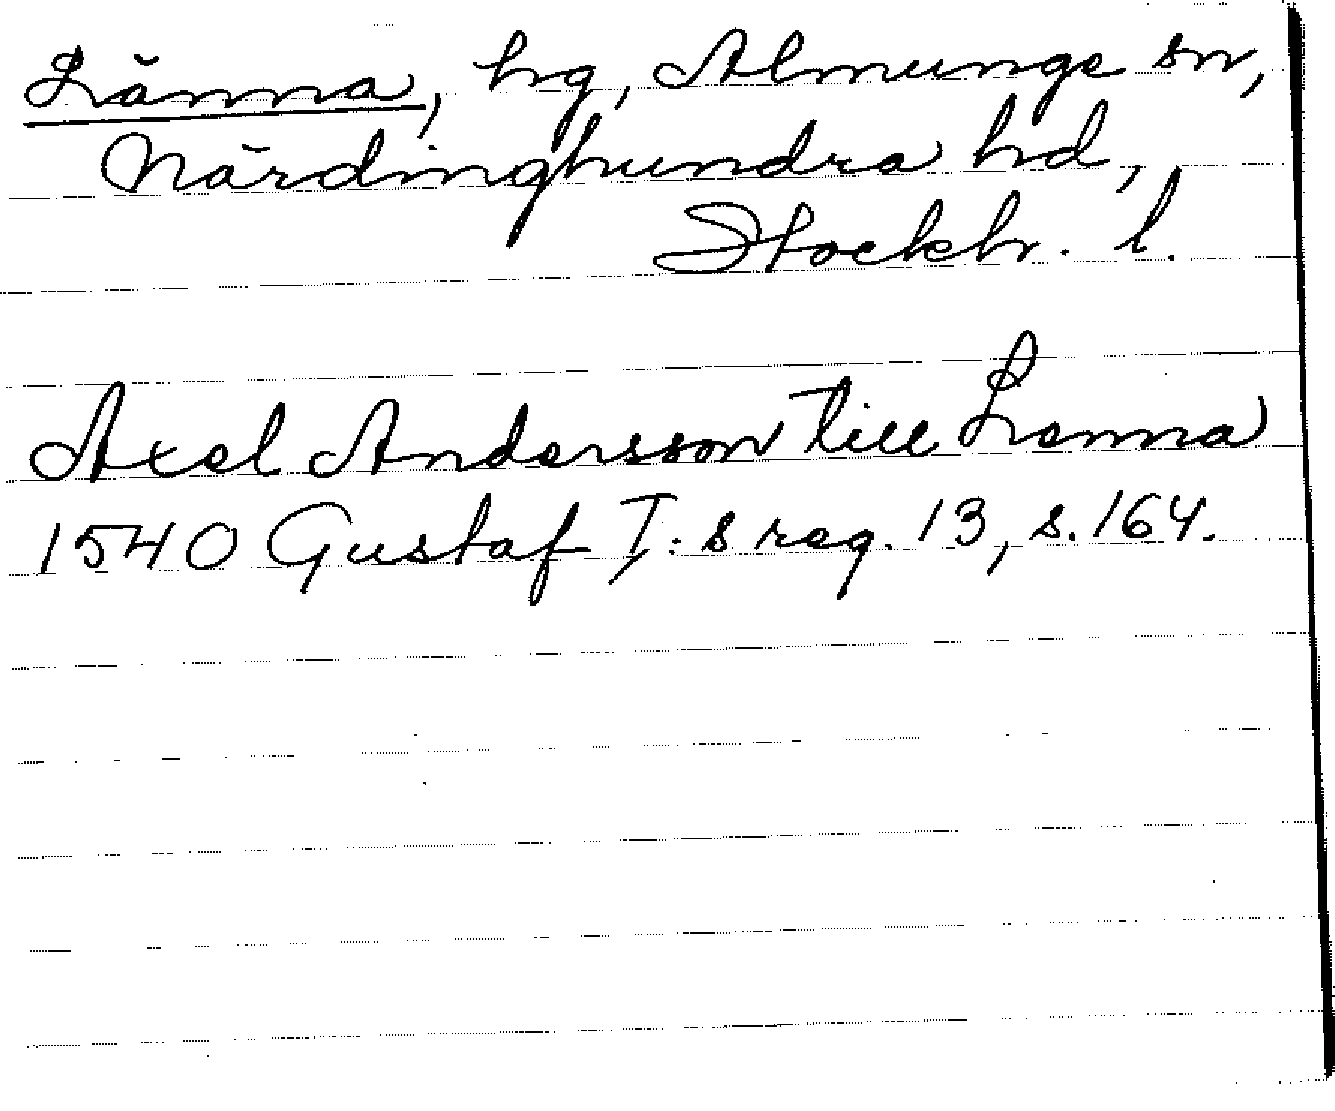 Länna, hg, Almunge sn,
Närdinghundra hd,
Stockh. l.
Axel Andersson till Lenna
1540 Gustaf I:s reg. 13, s. 164.